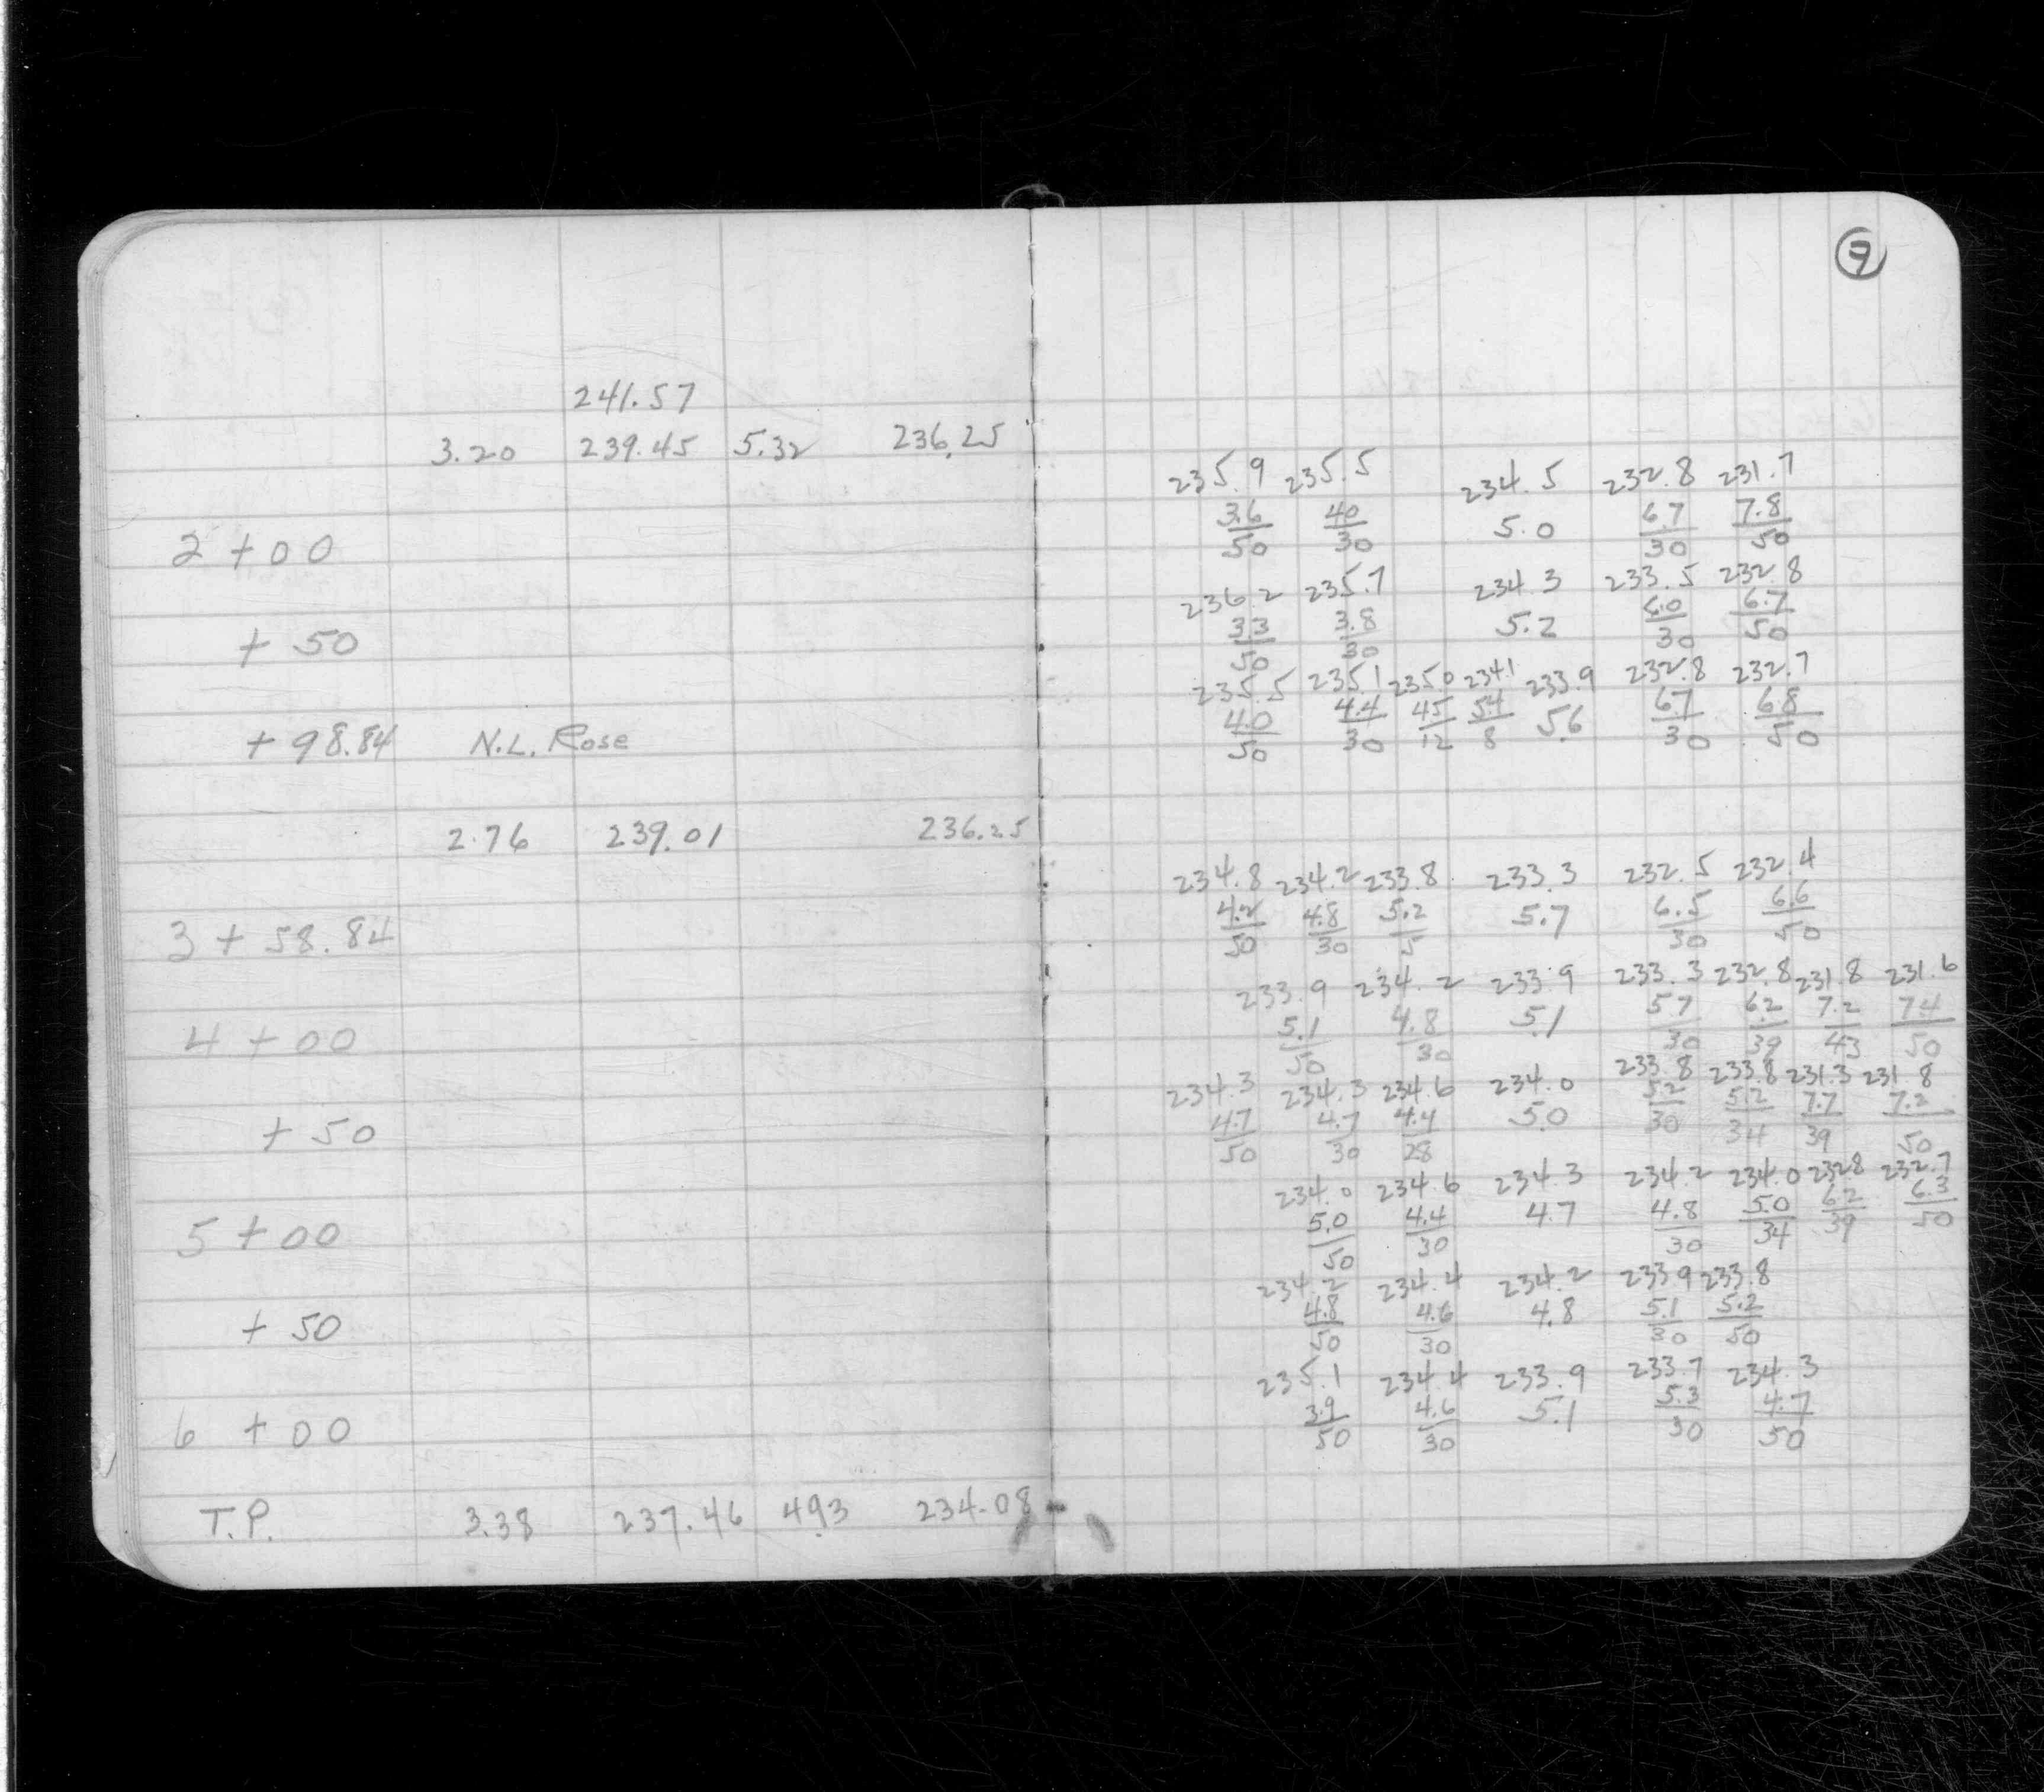 9
241.57
3.20 239.45 5.32 236.25
235.9 235.5 234.5 232.8 231.7
3.6 40 5.0 6.7 7.8
50 30 30 50
2 + 00
236.2 235.7 234.3 233.5 232.8
3.3 3.8 5.2 6.0 6.7
50 30 30 50
+ 50
235.5 235.1 235.0 234.1 233.9 232.8 232.7
4.0 4.4 45 54 5.6 67 68
50 30 12 8 30 50
+ 98.84 N.L. Rose
2.76 239.01 236.25
234.8 234.2 233.8 233.3 232.5 232.4
4.2 4.8 5.2 5.7 6.5 6.6
50 30 5 30 50
3 + 58.84
233.9 234.2 233.9 233.3 232.8 231.8 231.6
5.1 4.8 5.1 57 62 7.2 74
50 30 30 39 43 50
4 + 00
234.3 234.3 234.6 234.0 233.8 233.8 231.3 231.8
4.7 4.7 4.4 5.0 5.2 5.2 7.7 7.2
50 30 28 30 34 39 50
+ 50
234.0 234.6 234.3 234.2 234.0 232.8 232.7
5.0 4.4 4.7 4.8 5.0 6.2 6.3
50 30 30 34 39 50
5 + 00
234.2 234.4 234.2 233.9 233.8
4.8 4.6 4.8 5.1 5.2
50 30 30 50
+ 50
235.1 234.4 233.9 233.7 234.3
3.9 4.6 5.1 5.3 4.7
50 30 30 50
6 + 00
T.P. 3.38 237.46 4.93 234.08